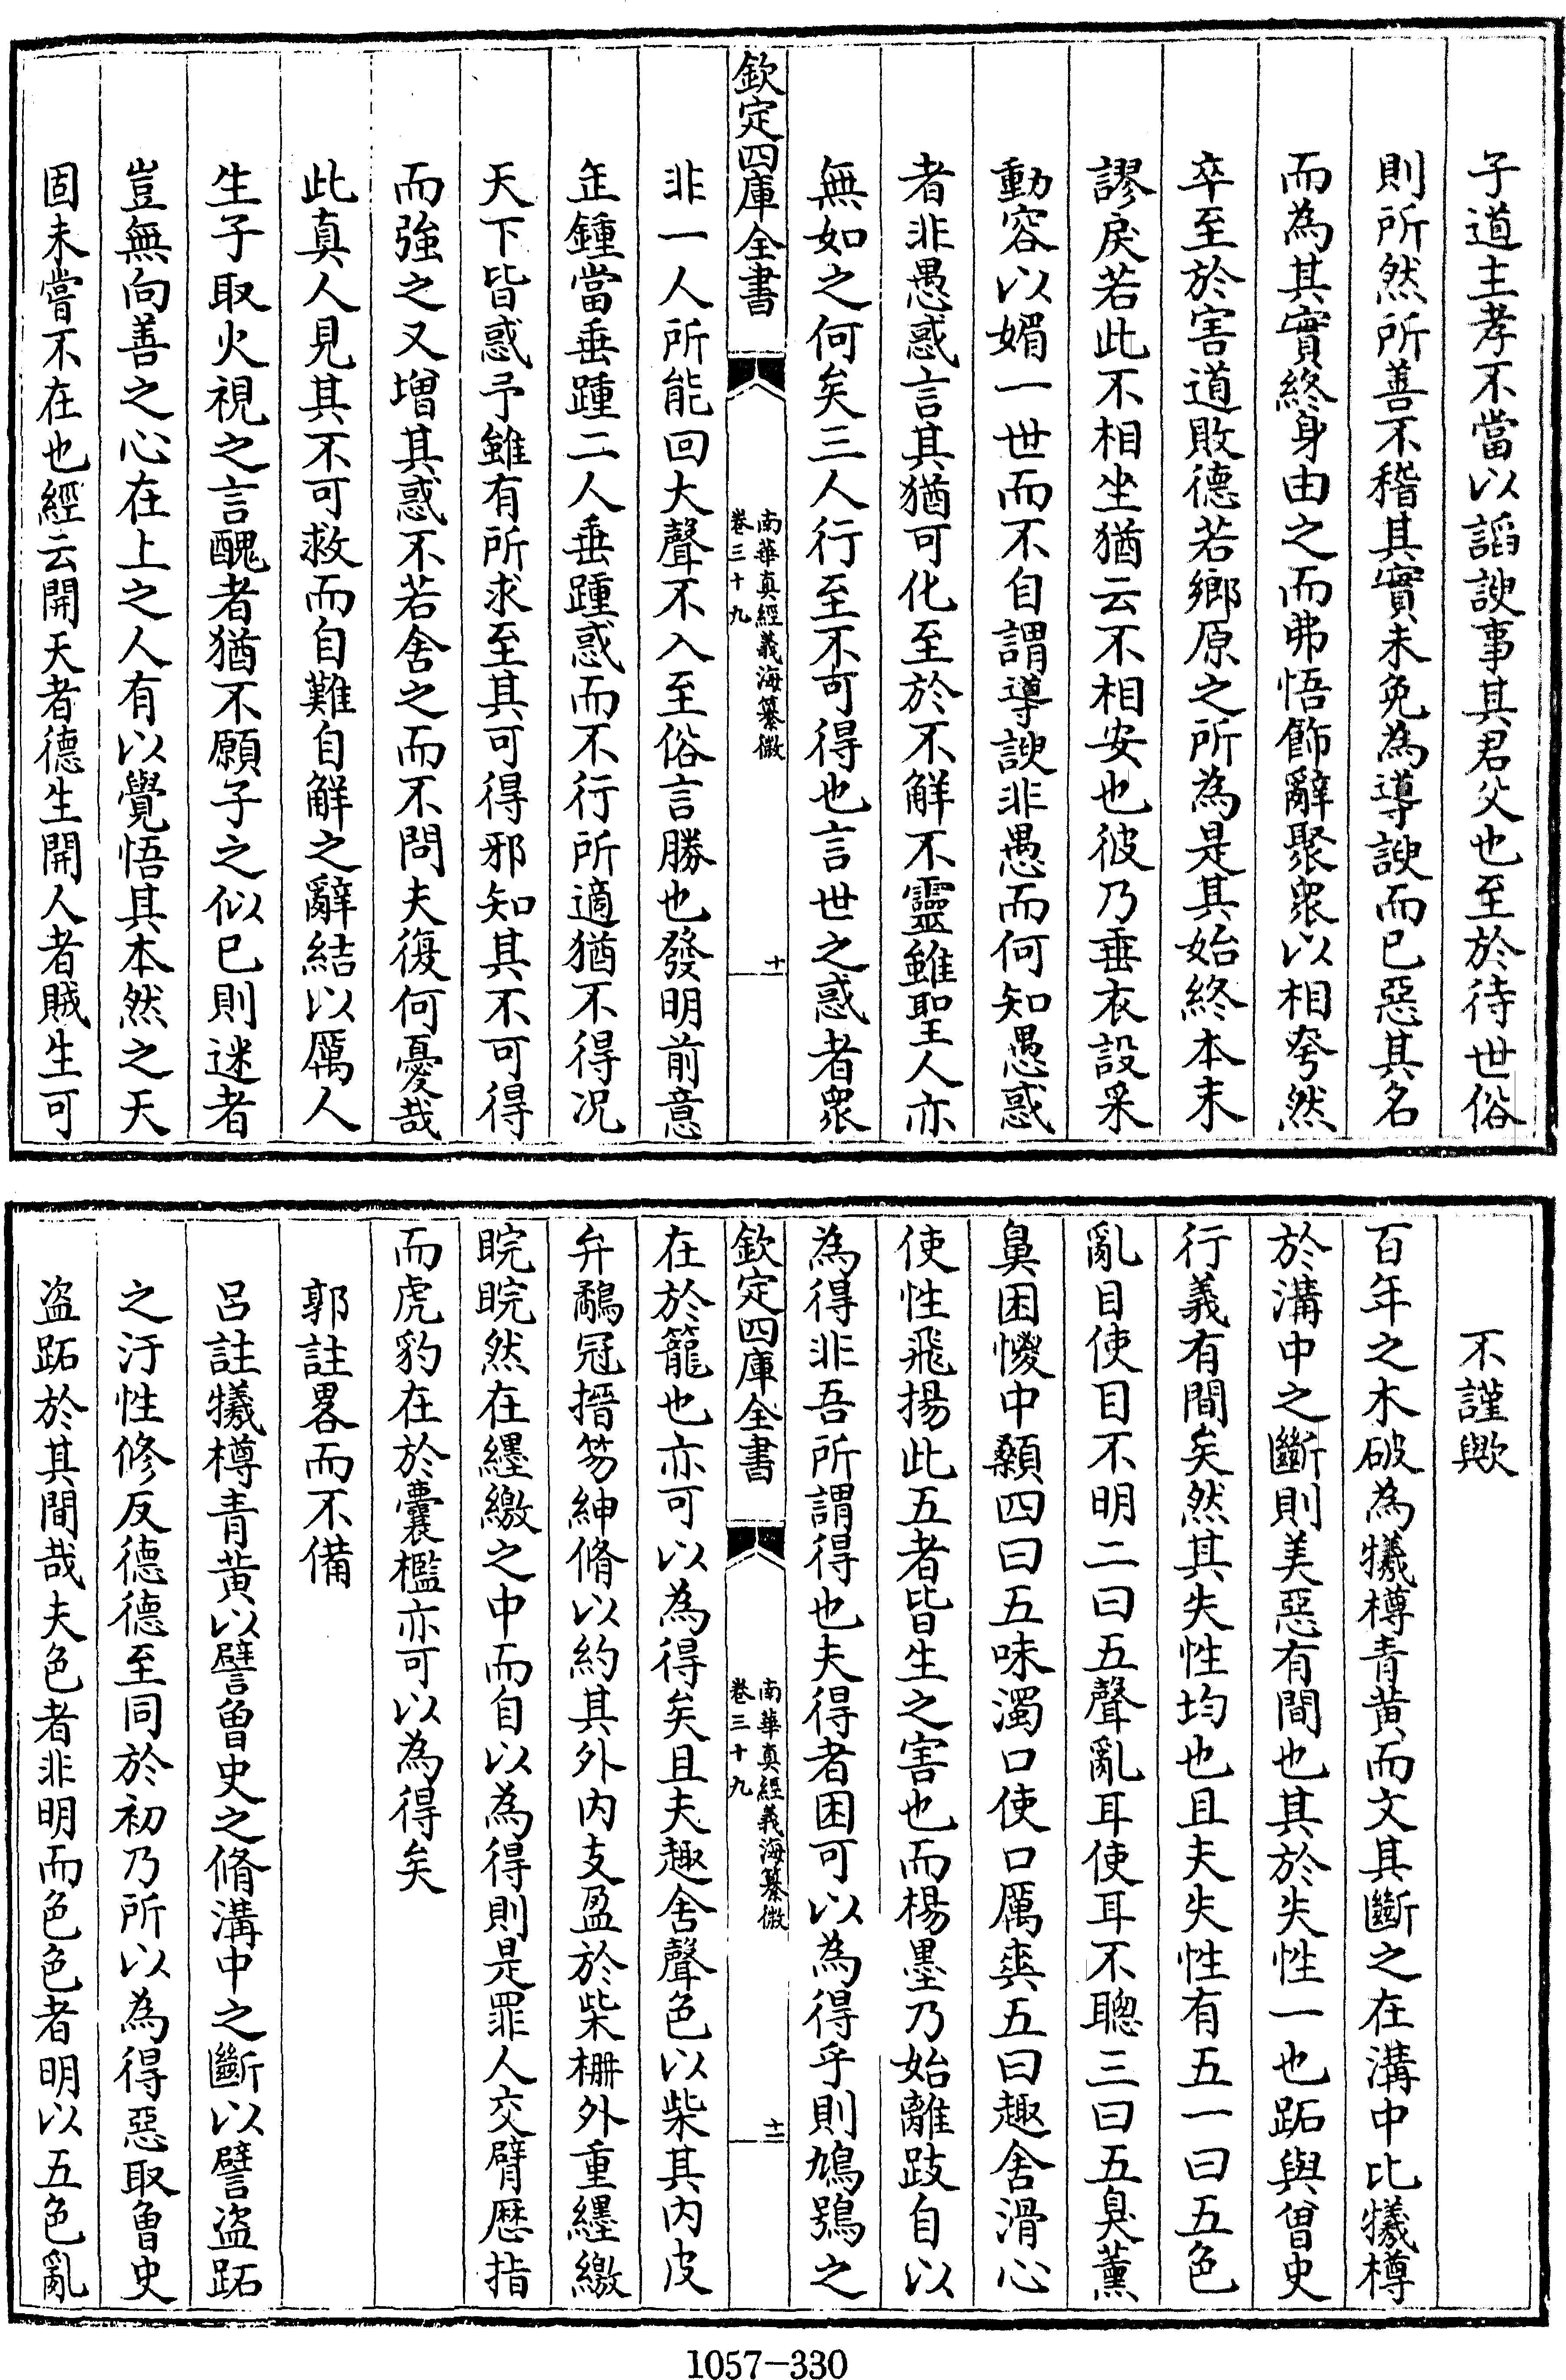 子道主孝不當以謟諛事其君父也至於待世俗
則所然所善不稽其實未免為導諛而已惡其名
而為其實終身由之而弗悟飾辭聚衆以相夸然
卒至於害道敗德若鄉原之所為是其始終本末
謬戾若此不相坐猶云不相安也彼乃垂衣設采
動容以媚一世而不自謂導諛非愚而何知愚惑
者非愚惑言其猶可化至於不解不靈雖聖人亦
無如之何矣三人行至不可得也言世之惑者衆
欽定四庫全書
南華真經義海纂微
卷三十九
十
非一人所能回大聲不入至俗言勝也發明前意
缶鍾當垂踵二人垂踵惑而不行所適猶不得况
天下皆惑予雖有所求至其可得邪知其不可得
而強之又增其惑不若舍之而不問夫復何憂哉
此真人見其不可救而自難自解之辭結以厲人
生子取火視之言醜者猶不願子之似已則迷者
豈無向善之心在上之人有以覺悟其本然之天
固未嘗不在也經云開天者德生開人者賊生可
不謹歟
百年之木破為犧樽青黄而文其斷之在溝中比犧樽
於溝中之斷則美惡有間也其於失性一也跖與曾史
行義有間矣然其失性均也且夫失性有五一曰五色
亂目使目不明二曰五聲亂耳使耳不聰三曰五臭薰
鼻困惾中顙四曰五味濁口使口厲爽五曰趣舍滑心
使性飛揚此五者皆生之害也而楊墨乃始離跂自以
為得非吾所謂得也夫得者困可以為得乎則鳩鴞之
欽定四庫全書
南華真經義海纂微
卷三十九
十一
在於籠也亦可以為得矣且夫趣舍聲色以柴其内皮
弁鷸冠搢笏紳脩以約其外内支盈於柴柵外重纆繳
睆睆然在纆繳之中而自以為得則是罪人交臂歴指
而虎豹在於囊檻亦可以為得矣
郭註畧而不備
呂註犧樽青黄以譬曾史之脩溝中之斷以譬盜跖
之汙性修反德德至同於初乃所以為得惡取曾史
盜跖於其間哉夫色者非明而色色者明以五色亂
1057-330